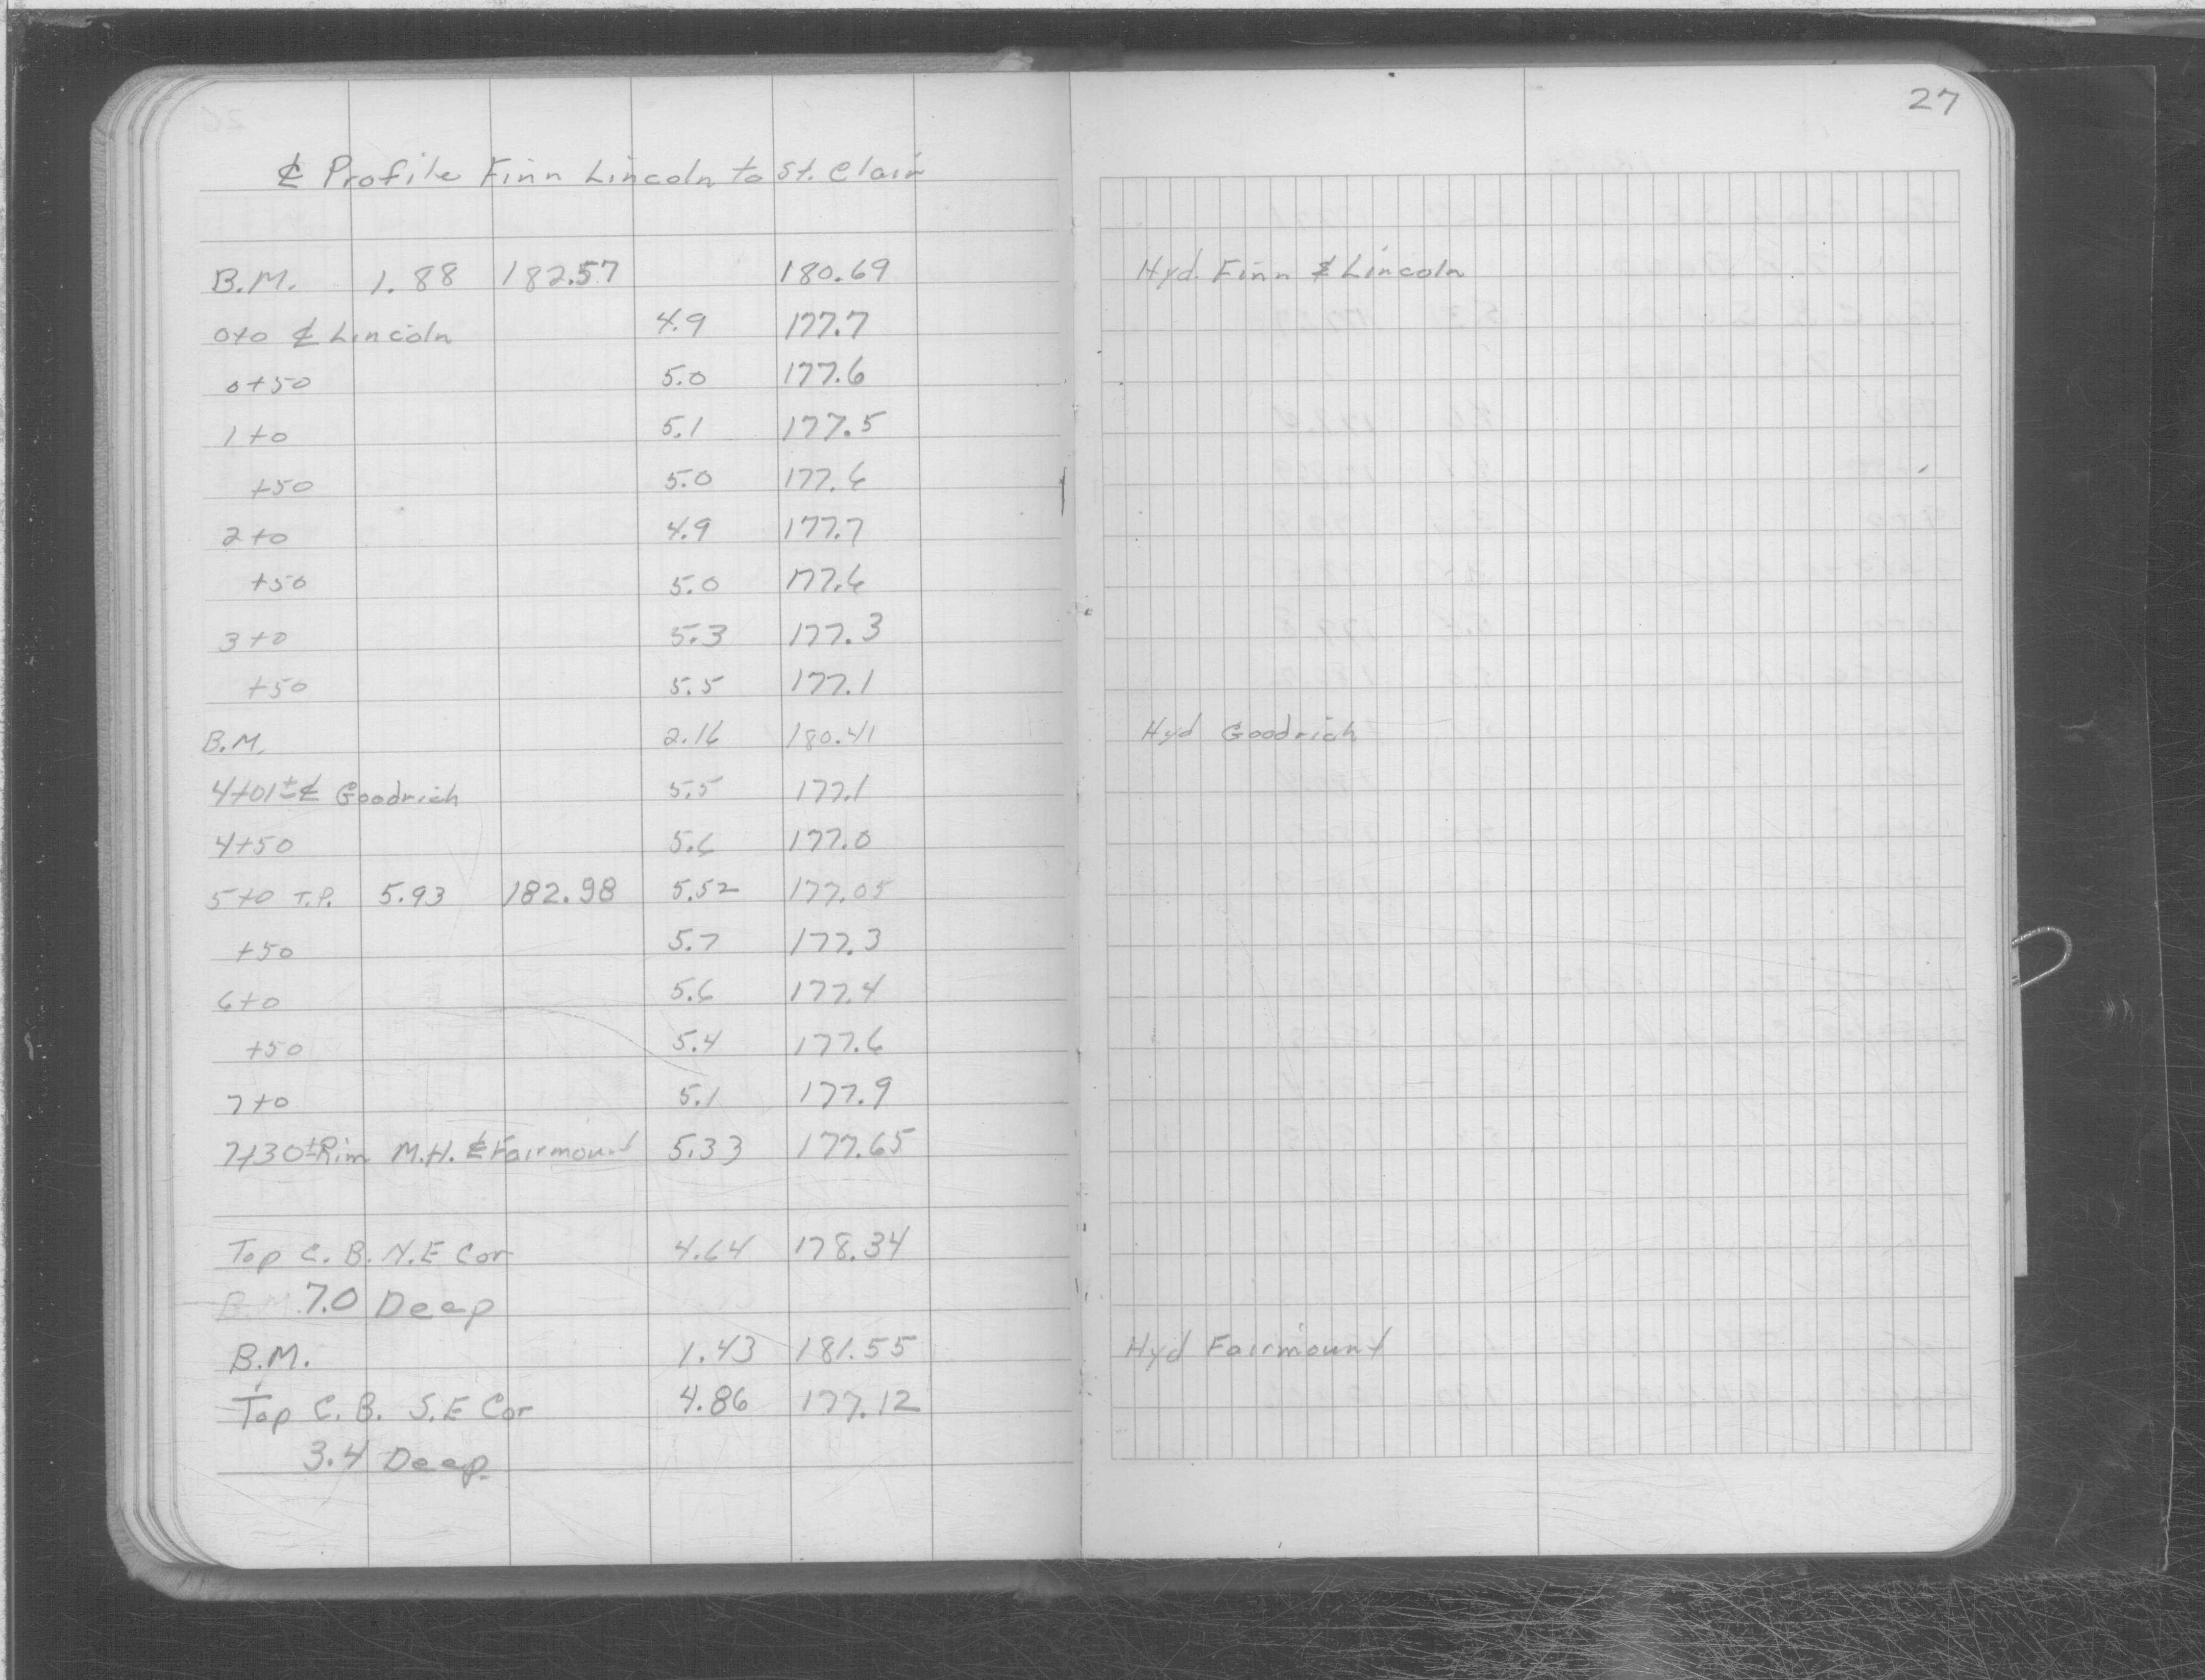 27
℄ Profile Finn Lincoln to St. Clair
B.M. 1.88 182.57 180.69 Hyd. Finn & Lincoln
0+0 ℄ Lincoln 4.9 177.7
0+50 5.0 177.6
1+0 5.1 177.5
+50 5.0 177.6
2+0 4.9 177.7
+50 5.0 177.6
3+0 5.3 177.3
+50 5.5 177.1
B.M. 2.16 180.41 Hyd Goodrich
4+01± ℄ Goodrich 5.5 177.1
4+50 5.6 177.0
5+0 T.P. 5.93 182.98 5.52 177.05
+50 5.7 177.3
6+0 5.6 177.4
+50 5.4 177.6
7+0 5.1 177.9
7+30± Rim M.H. ℄ Fairmount 5.33 177.65
Top C.B. N.E Cor 4.64 178.34
7.0 Deep
B.M. 1.43 181.55 Hyd Fairmount
Top C.B. S.E Cor 4.86 177.12
3.4 Deep.